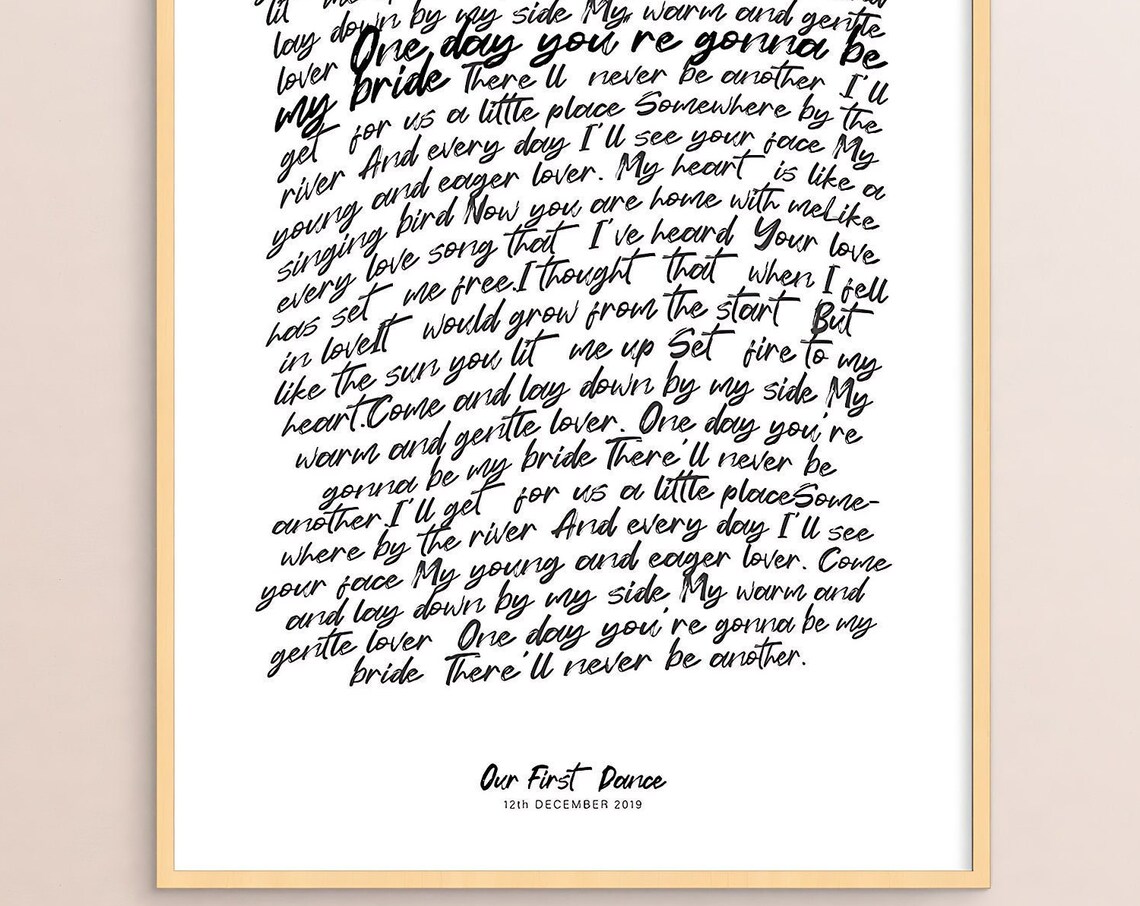 lit me
lay down by my side My warm and gentle
lover One day you're gonna be
my bride There'll never be another I'll
get for us a little place Somewhere by the
river And every day I'll see your face My
young and eager lover. My heart is like a
singing bird Now you are home with meLike
every love song that I've heard Your love
has set me free.I thought that when I fell
in loveIt would grow from the start But
like the sun you lit me up Set fire to my
heart.Come and lay down by my side My
warm and gentle lover. One day you're
gonna be my bride There'll never be
another I'll get for us a little placeSome-
where by the river And every day I'll see
your face My young and eager lover. Come
and lay down by my side My warm and
gentle lover One day you're gonna be my
bride There'll never be another.
Our First Dance
12th DECEMBER 2019